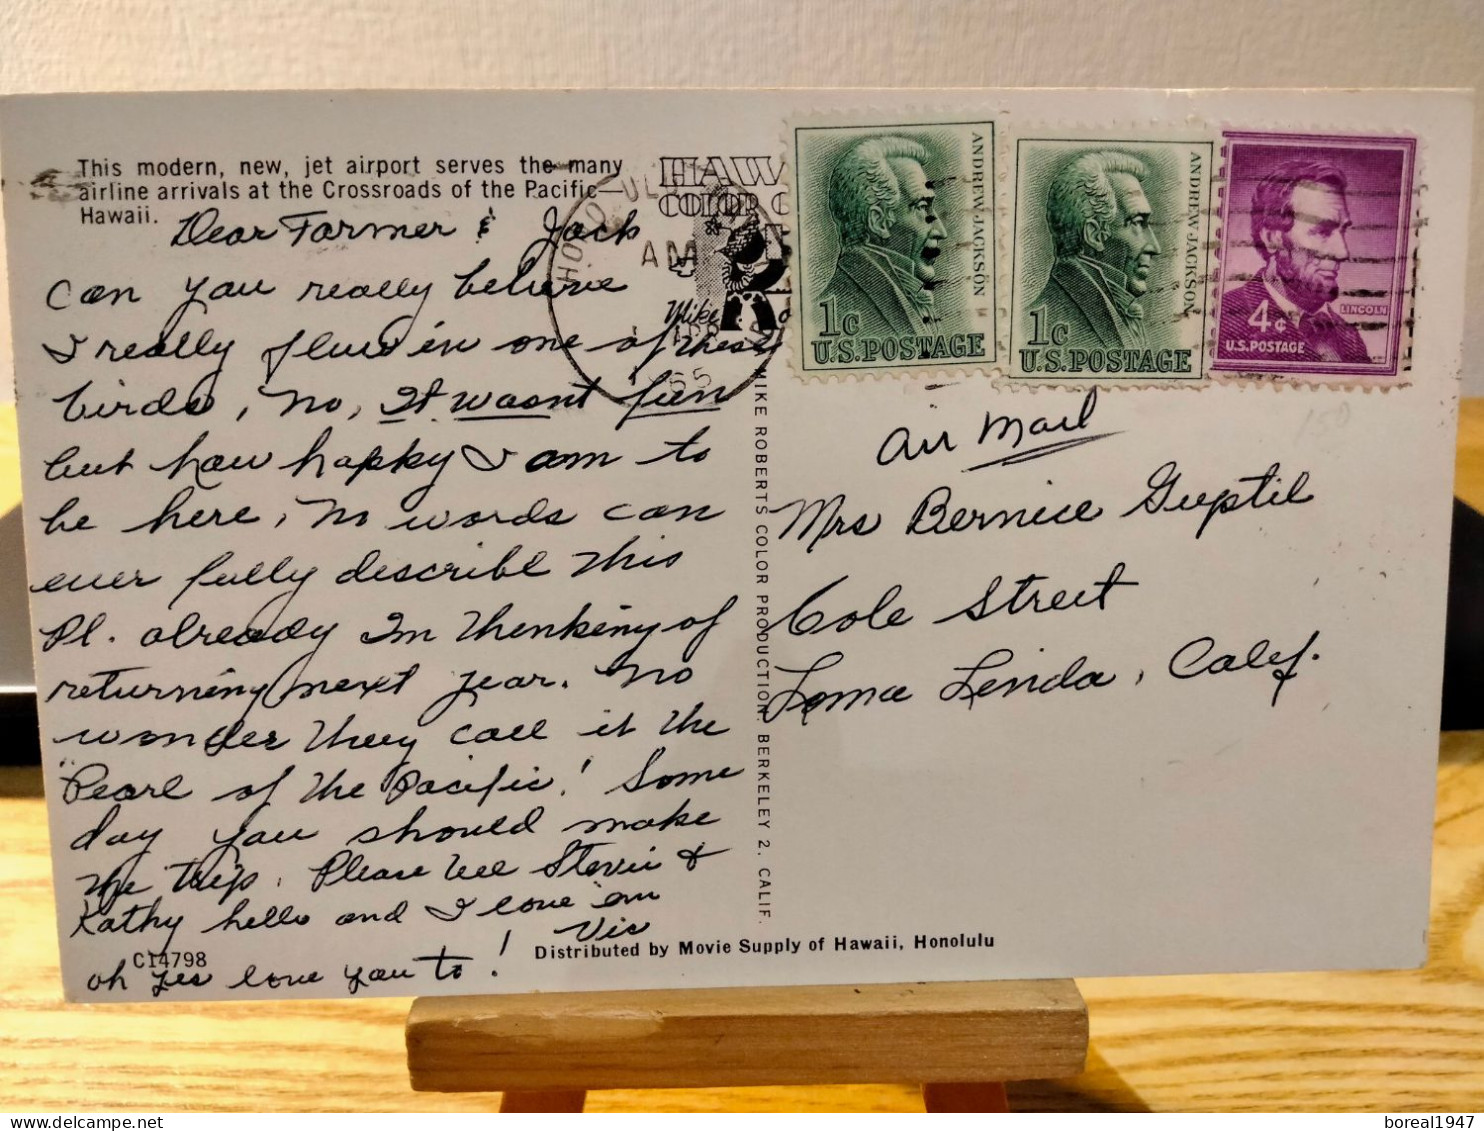 This modern, new, jet airport serves the many
airline arrivals at the Crossroads of the Pacific
Hawaii.
Dear Farmer & Jack
Can you really believe
I really flew in one of these
birds, No, It wasnt fun
but how happy I am to
be here, No words can
ever fully describe this
Pl. already Im thinking of
returning next year. No
wonder they call it the
"Pearl of the Pacific! Some
day you should make
the trip. Please tell Stevie &
Kathy hello and I love em
Vic
oh yes love you to!
C14798
Distributed by Movie Supply of Hawaii, Honolulu
MIKE ROBERTS COLOR PRODUCTION. BERKELEY 2. CALIF.
HONOLULU
AM
65
HAW
COLOR
Mike
ANDREW JACKSON
1c
U.S. POSTAGE
ANDREW JACKSON
1c
U.S. POSTAGE
4¢
LINCOLN
U.S. POSTAGE
150
Air Mail
Mrs Bernice Guptil
Cole Street
Loma Linda, Calif.
boreal1947